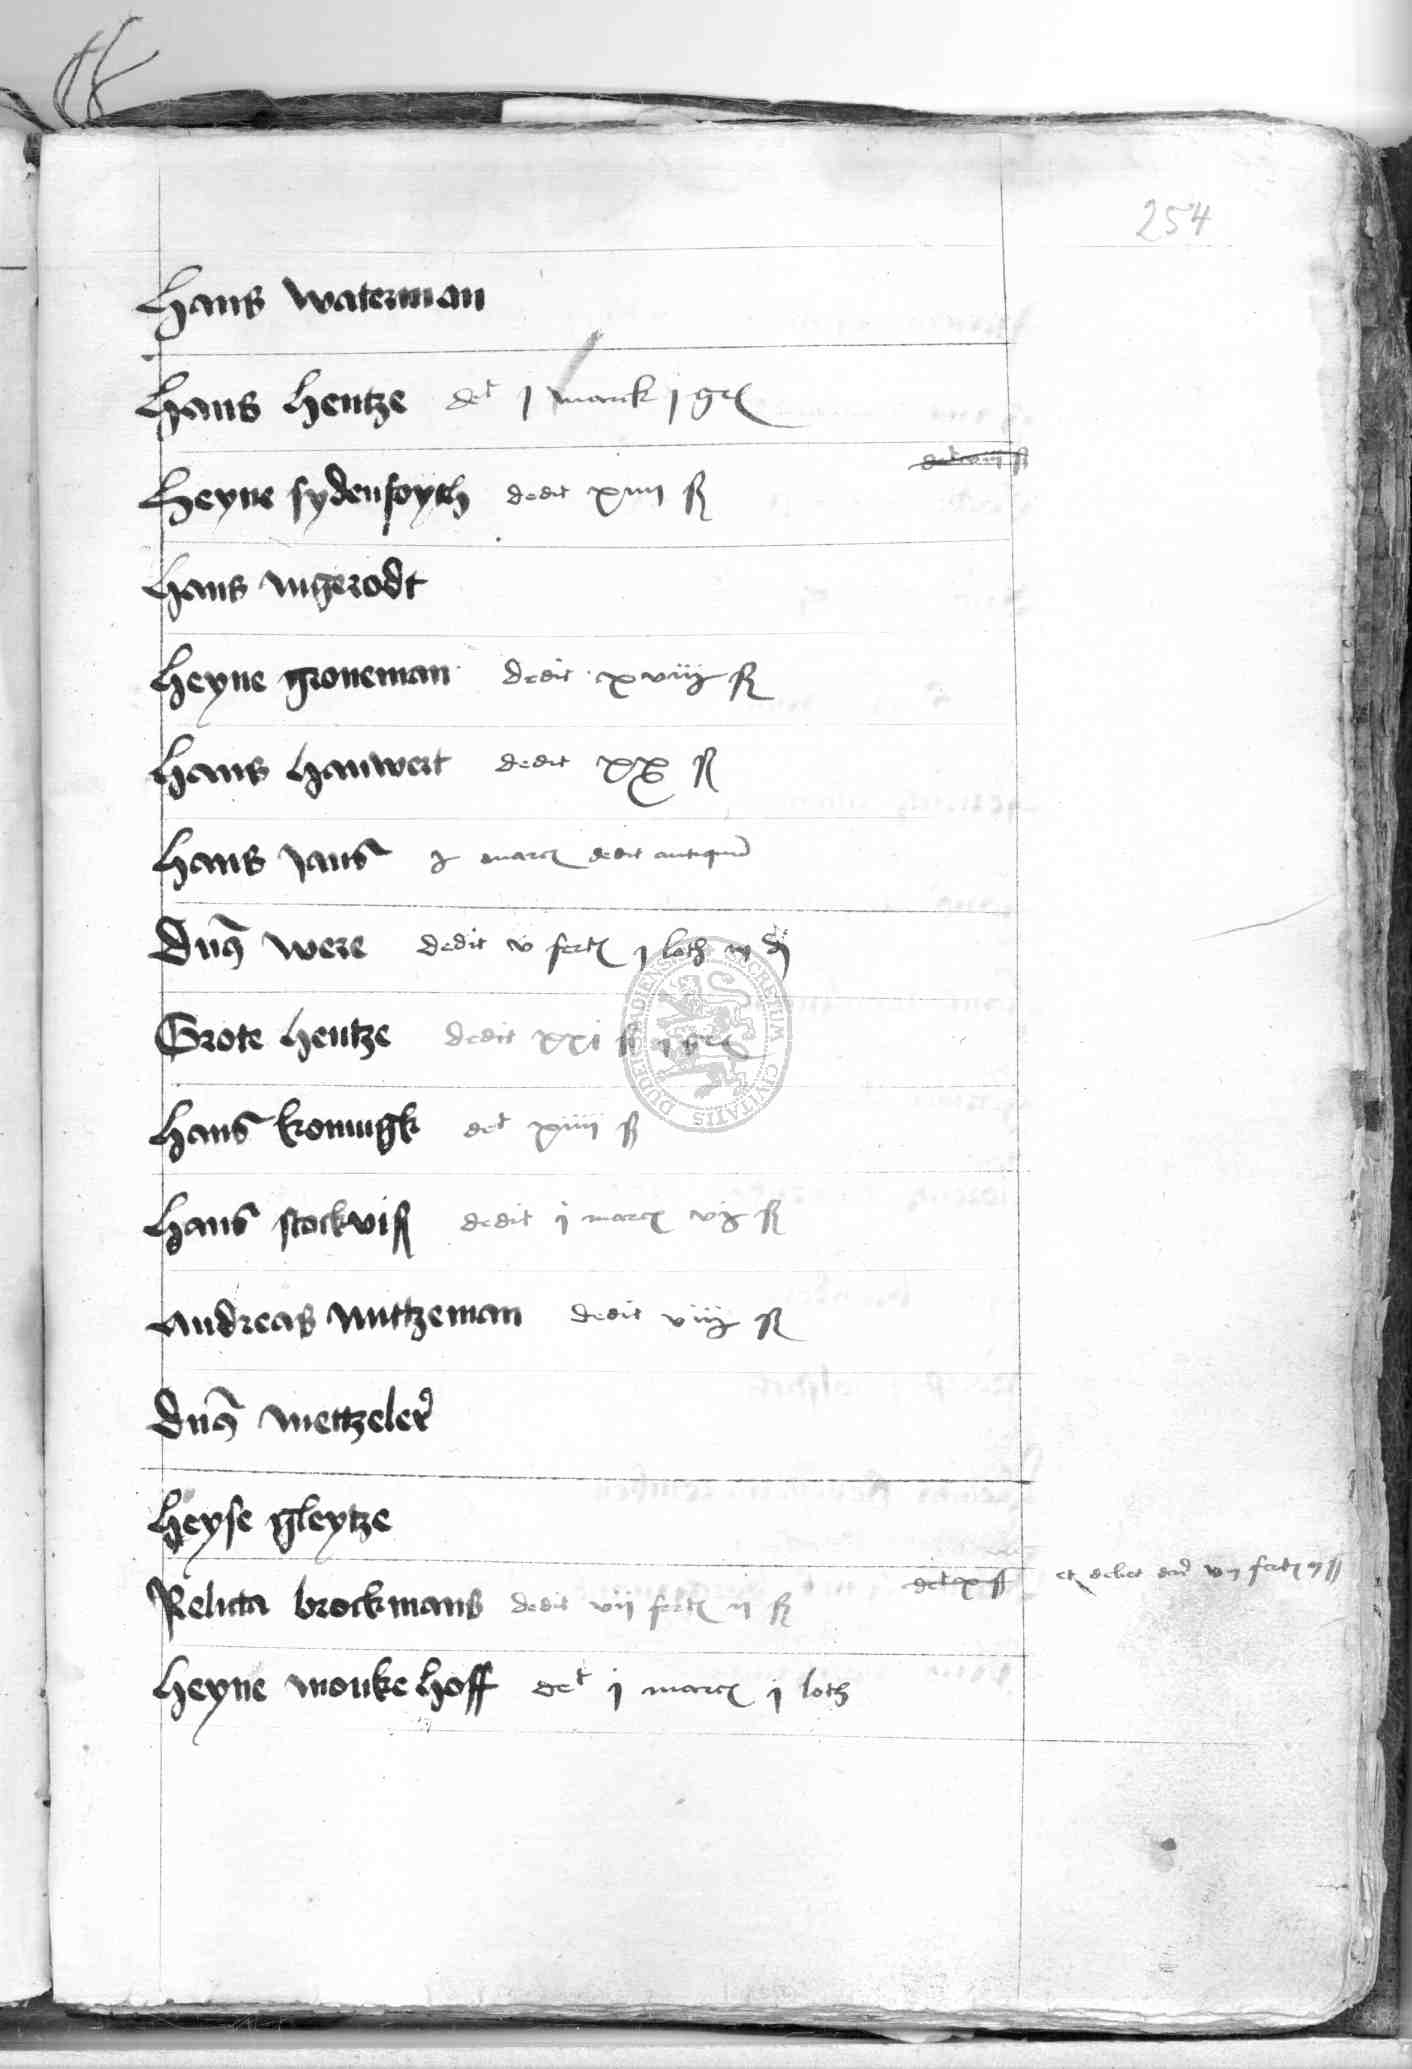 254
Hans waterman
Hans hentze det j marck j gr
det viij ß
Heyne sydenfoyth dedit xiiii ß
Hans ingerodt
Heyne groneman dedit xviij ß
Hans hauwert dedit xx ß
Hans Jans j marc dedit antiquum
Dns were dedit v fert j loth iij d
Grote hentze dedit xxi ß j gr
Hans konnigk det xiiii ß
Hans stockviß dedit j marc vij ß
Andreas mutzeman dedit viij ß
Dns mettzeler
Heyse gleytze
det x ß et debet vij fert ij ß
Relicta brockmans dedit vij fert ij ß
Heyne monkehoff det j marc j loth
SECRETUM CIVITATIS DUDERSTADIENSIS